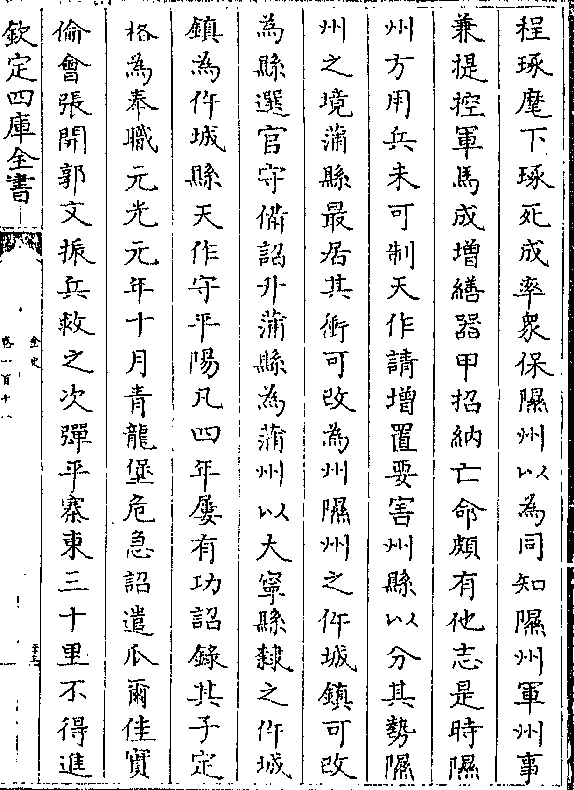 程琢麾下琢死成率衆保隰州以為同知隰州軍州事
兼提控軍馬成增繕器甲招納亡命頗有他志是時隰
州方用兵未可制天作請增置要害州縣以分其勢隰
州之境蒲縣最居其衝可改為州隰州之仵城鎮可改
為縣選官守備詔升蒲縣為蒲州以大寧縣隸之仵城
鎮為仵城縣天作守平陽凡四年屢有功詔錄其子定
格為奉職元光元年十月青龍堡危急詔遣瓜爾佳實
倫會張開郭文振兵救之次彈平寨東三十里不得進
欽定四庫全書
金史
卷一百十八